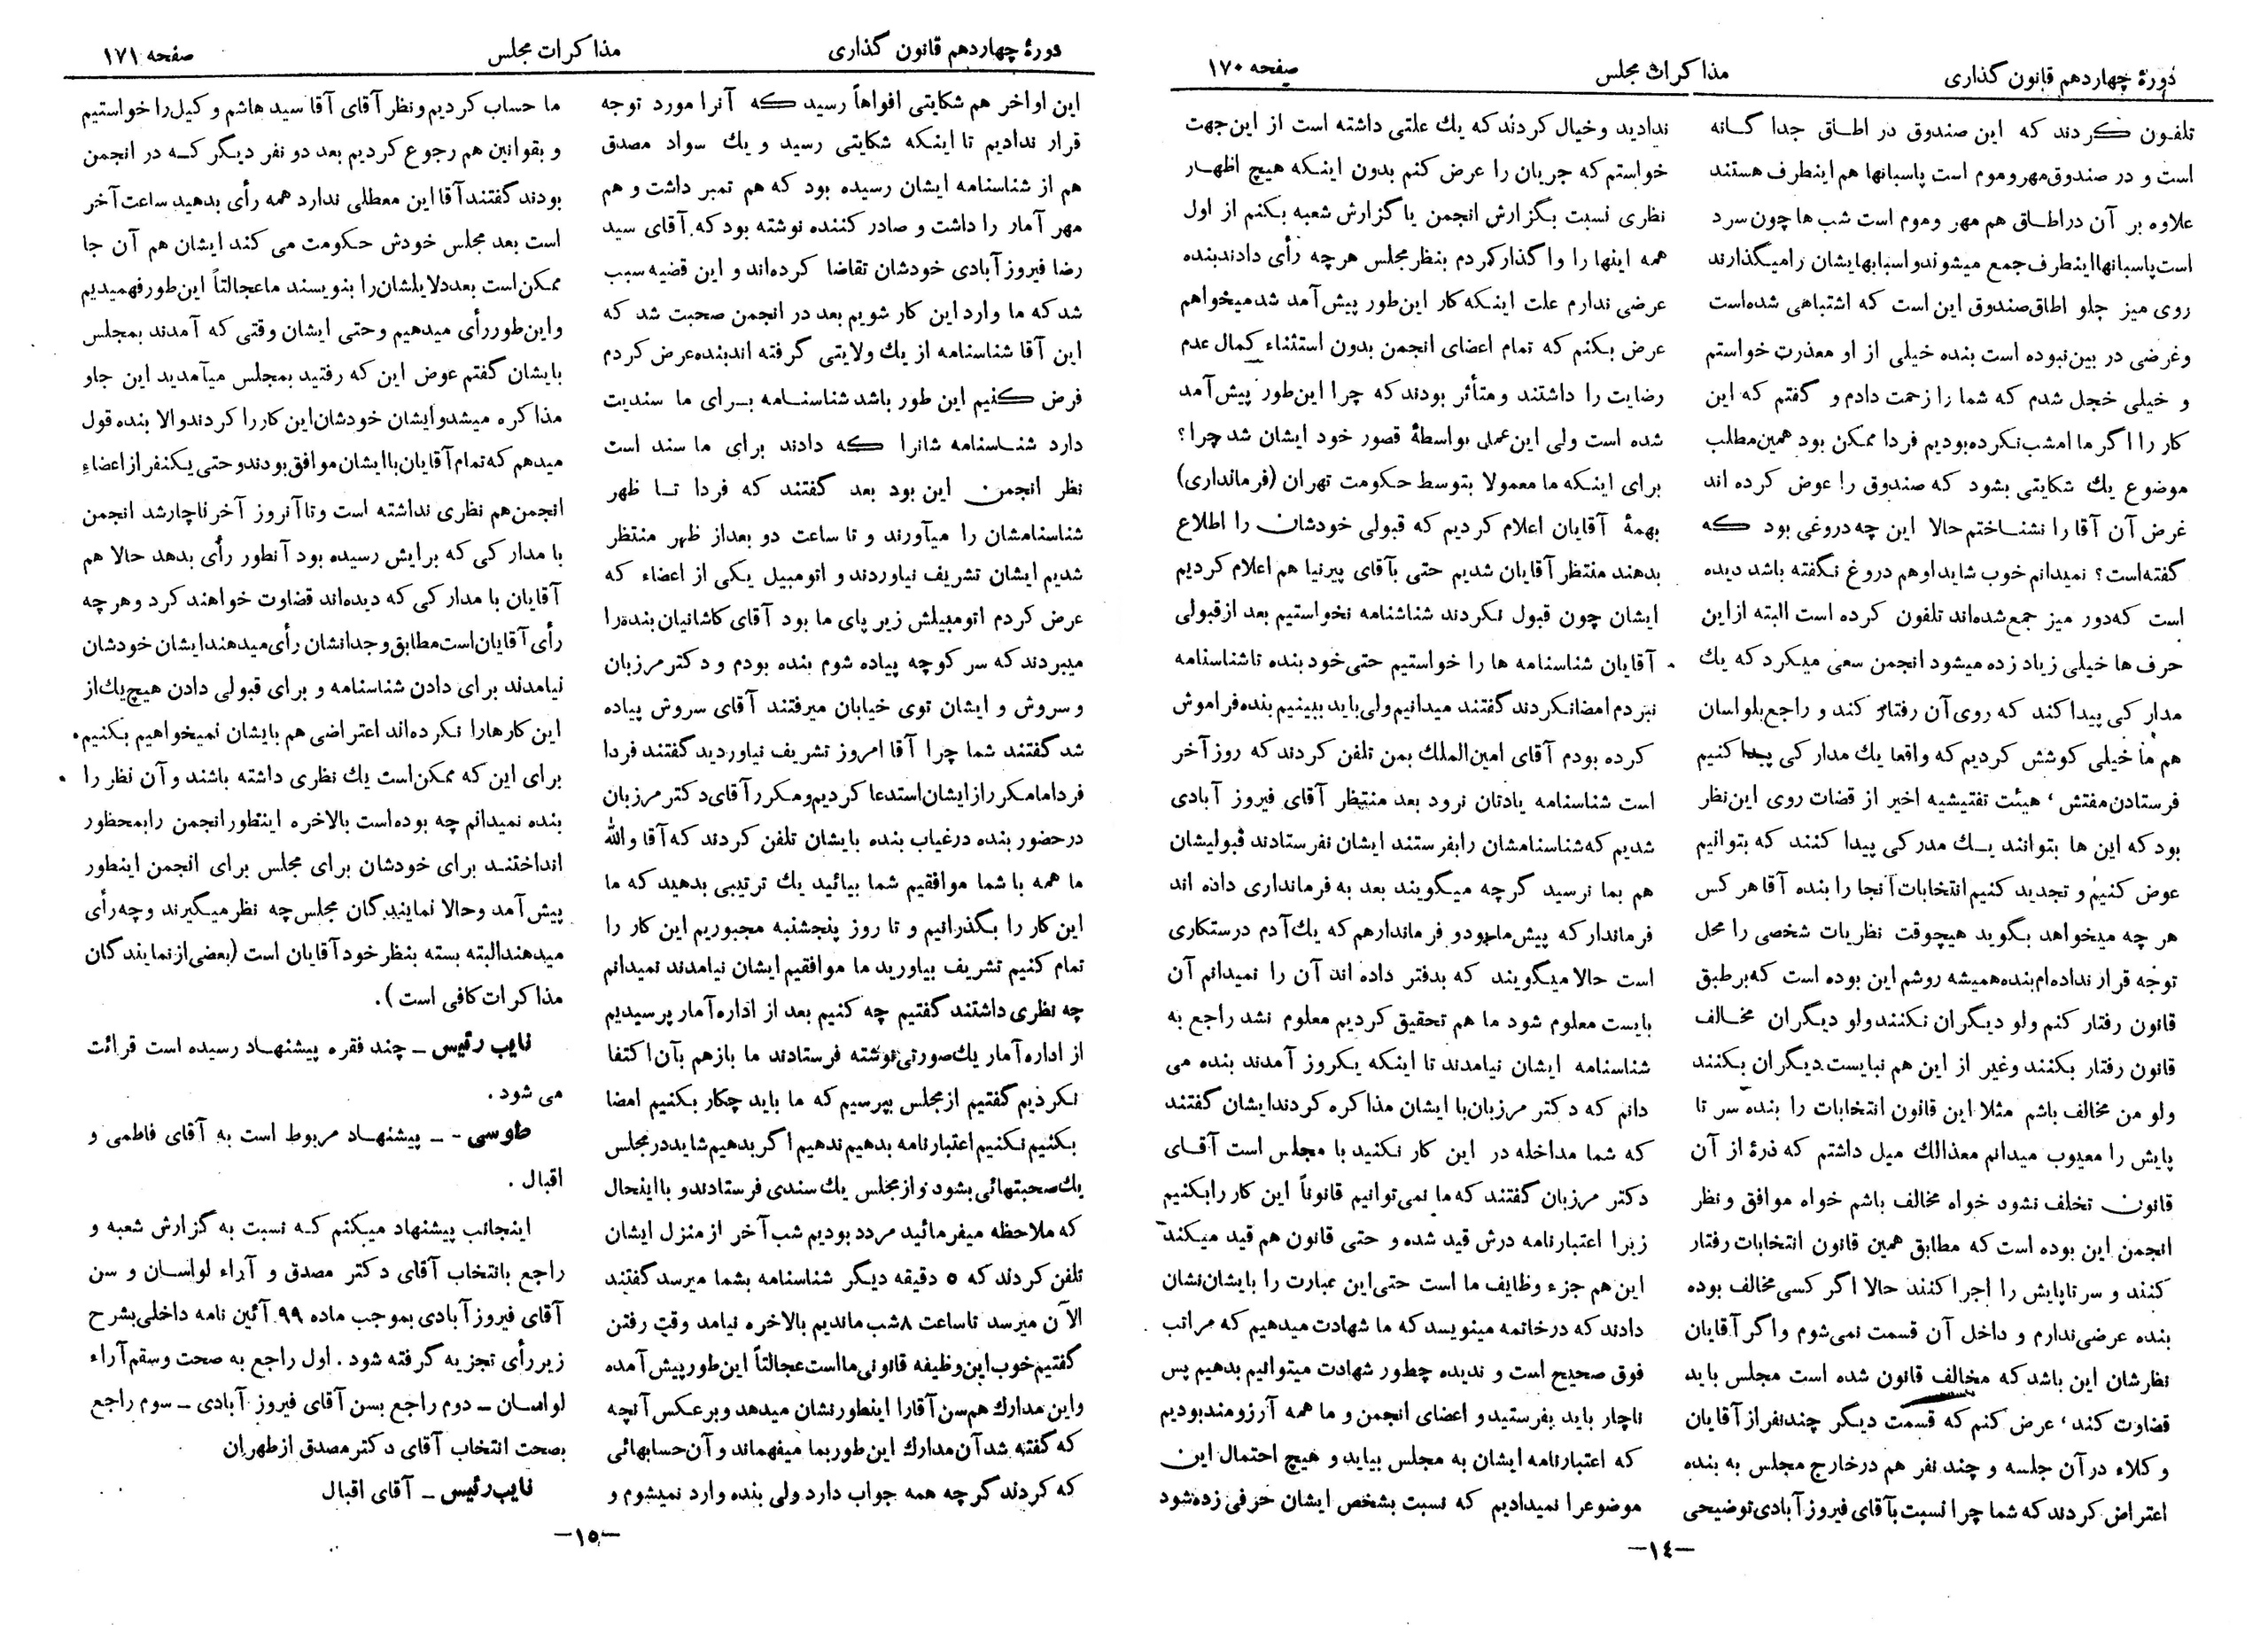 دورهٔ چهاردهم قانون گذاری
مذاکرات مجلس
صفحه ۱۷۰
تلفون کردند که این صندوق در اطاق جدا گانه
است و در صندوق مهروموم است پاسبانها هم اینطرف هستند
علاوه بر آن در اطاق هم مهر وموم است شب ها چون سرد
است پاسبانها اینطرف جمع میشوند و اسبابهایشان را میگذارند
روی میز جلو اطاق صندوق این است که اشتباهی شده است
وغرضی در بین نبوده است بنده خیلی از او معذرت خواستم
و خیلی خجل شدم که شما را زحمت دادم و گفتم که این
کار را اگر ما امشب نکرده بودیم فردا ممکن بود همین مطلب
موضوع یك شکایتی بشود که صندوق را عوض کرده اند
غرض آن آقا را نشناختم حالا این چه دروغی بود که
گفته است؟ نمیدانم خوب شاید او هم دروغ نگفته باشد دیده
است که دور میز جمع شده اند تلفون کرده است البته از این
حرف ها خیلی زیاد زده میشود انجمن سعی میکرد که یك
مدارکی پیدا کند که روی آن رفتار کند و راجع بلواسان
هم ما خیلی کوشش کردیم که واقعا یك مدارکی پیدا کنیم
فرستادن مفتش، هیئت تفتیشیه اخیر از قضات روی این نظر
بود که این ها بتوانند یك مدرکی پیدا کنند که بتوانیم
عوض کنیم و تجدید کنیم انتخابات آنجا را بنده آقا هر کس
هر چه میخواهد بگوید هیچوقت نظریات شخصی را محل
توجه قرار نداده ام بنده همیشه روشم این بوده است که برطبق
قانون رفتار کنم ولو دیگران نکنند ولو دیگران مخالف
قانون رفتار بکنند وغیر از این هم نبایست دیگران بکنند
ولو من مخالف باشم مثلا این قانون انتخابات را بنده سر تا
پایش را معیوب میدانم معذالك میل داشتم که ذرهٔ از آن
قانون تخلف نشود خواه مخالف باشم خواه موافق و نظر
انجمن این بوده است که مطابق همین قانون انتخابات رفتار
کنند و سر تا پایش را اجرا کنند حالا اگر کسی مخالف بوده
بنده عرضی ندارم و داخل آن قسمت نمی شوم واگر آقایان
نظرشان این باشد که مخالف قانون شده است مجلس باید
قضاوت کند، عرض کنم که قسمت دیگر چند نفر از آقایان
و کلاء در آن جلسه و چند نفر هم در خارج مجلس به بنده
اعتراض کردند که شما چرا نسبت بآقای فیروز آبادی توضیحی
ندادید وخیال کردند که یك علتی داشته است از این جهت
خواستم که جریان را عرض کنم بدون اینکه هیچ اظهار
نظری نسبت بگزارش انجمن یا گزارش شعبه بکنم از اول
همه اینها را واگذار کردم بنظر مجلس هرچه رأی دادند بنده
عرضی ندارم علت اینکه کار این طور پیش آمد شد میخواهم
عرض بکنم که تمام اعضای انجمن بدون استثناء کمال عدم
رضایت را داشتند و متأثر بودند که چرا این طور پیش آمد
شده است ولی این عمل بواسطهٔ قصور خود ایشان شد چرا؟
برای اینکه ما معمولا بتوسط حکومت تهران (فرمانداری)
بهمهٔ آقایان اعلام کردیم که قبولی خودشان را اطلاع
بدهند منتظر آقایان شدیم حتی بآقای پیرنیا هم اعلام کردیم
ایشان چون قبول نکردند شناشنامه نخواستیم بعد از قبولی
آقایان شناسنامه ها را خواستیم حتی خود بنده تا شناسنامه
نبردم امضا نکردند گفتند میدانیم ولی باید ببینیم بنده فراموش
کرده بودم آقای امین الملك بمن تلفن کردند که روز آخر
است شناسنامه یادتان نرود بعد منتظر آقای فیروز آبادی
شدیم که شناسنامشان را بفرستند ایشان نفرستادند قبولیشان
هم بما نرسید گرچه میگویند بعد به فرمانداری داده اند
فرماندار که پیش ما بود و فرماندار هم که یك آدم درستکاری
است حالا میگویند که بدفتر داده اند آن را نمیدانم آن
بایست معلوم شود ما هم تحقیق کردیم معلوم نشد راجع به
شناسنامه ایشان نیامدند تا اینکه یکروز آمدند بنده می
دانم که دکتر مرزبان با ایشان مذاکره کردند ایشان گفتند
که شما مداخله در این کار نکنید با مجلس است آقای
دکتر مرزبان گفتند که ما نمی توانیم قانوناً این کار را بکنیم
زیرا اعتبارنامه درش قید شده و حتی قانون هم قید میکند
این هم جزء وظایف ما است حتی این عبارت را بایشان نشان
دادند که در خاتمه مینویسد که ما شهادت میدهیم که مراتب
فوق صحیح است و ندیده چطور شهادت میتوانیم بدهیم پس
ناچار باید بفرستید و اعضای انجمن و ما همه آرزومند بودیم
که اعتبارنامه ایشان به مجلس بیاید و هیچ احتمال این
موضوعرا نمیدادیم که نسبت بشخص ایشان حرفی زده شود
-۱٤-
دورهٔ چهاردهم قانون گذاری
مذاکرات مجلس
صفحه ۱۷۱
این اواخر هم شکایتی افواهاً رسید که آنرا مورد توجه
قرار ندادیم تا اینکه شکایتی رسید و یك سواد مصدق
هم از شناسنامه ایشان رسیده بود که هم تمبر داشت و هم
مهر آمار را داشت و صادر کننده نوشته بود که آقای سید
رضا فیروز آبادی خودشان تقاضا کرده اند و این قضیه سبب
شد که ما وارد این کار شویم بعد در انجمن صحبت شد که
این آقا شناسنامه از یك ولایتی گرفته اند بنده عرض کردم
فرض کنیم این طور باشد شناسنامه برای ما سندیت
دارد شناسنامه شانرا که دادند برای ما سند است
نظر انجمن این بود بعد گفتند که فردا تا ظهر
شناسنامشان را میآورند و تا ساعت دو بعد از ظهر منتظر
شدیم ایشان تشریف نیاوردند و اتومبیل یکی از اعضاء که
عرض کردم اتومبیلش زیر پای ما بود آقای کاشانیان بنده را
میبردند که سر کوچه پیاده شوم بنده بودم و دکتر مرزبان
و سروش و ایشان توی خیابان میرفتند آقای سروش پیاده
شد گفتند شما چرا آقا امروز تشریف نیاوردید گفتند فردا
فردا ما مکرر از ایشان استدعا کردیم و مکرر آقای دکتر مرزبان
در حضور بنده در غیاب بنده بایشان تلفن کردند که آقا والله
ما همه با شما موافقیم شما بیائید یك ترتیبی بدهید که ما
این کار را بگذرانیم و تا روز پنجشنبه مجبوریم این کار را
تمام کنیم تشریف بیاورید ما موافقیم ایشان نیامدند نمیدانم
چه نظری داشتند گفتیم چه کنیم بعد از اداره آمار پرسیدیم
از اداره آمار یك صورتی نوشته فرستادند ما باز هم بآن اکتفا
نکردیم گفتیم از مجلس بپرسیم که ما باید چکار بکنیم امضا
بکنیم نکنیم اعتبارنامه بدهیم ندهیم اگر بدهیم شاید در مجلس
یك صحبتهائی بشود و از مجلس یك سندی فرستادند و با اینحال
که ملاحظه میفرمائید مردد بودیم شب آخر از منزل ایشان
تلفن کردند که ۵ دقیقه دیگر شناسنامه بشما میرسد گفتند
الآن میرسد تا ساعت ۸ شب ماندیم بالاخره نیامد وقت رفتن
گفتیم خوب این وظیفه قانونی ما است عجالتاً این طور پیش آمده
و این مدارك هم سن آقا را اینطور نشان میدهد و برعکس آنچه
که گفته شد آن مدارك این طور بما میفهماند و آن حسابهائی
که کردند گرچه همه جواب دارد ولی بنده وارد نمیشوم و
ما حساب کردیم ونظر آقای آقا سید هاشم وکیل را خواستیم
و بقوانین هم رجوع کردیم بعد دو نفر دیگر که در انجمن
بودند گفتند آقا این معطلی ندارد همه رأی بدهید ساعت آخر
است بعد مجلس خودش حکومت می کند ایشان هم آن جا
ممکن است بعد دلایلشان را بنویسند ما عجالتاً این طور فهمیدیم
و این طور رأی میدهیم وحتی ایشان وقتی که آمدند بمجلس
بایشان گفتم عوض این که رفتید بمجلس میآمدید این جا و
مذاکره میشد و ایشان خودشان این کار را کردند والا بنده قول
میدهم که تمام آقایان با ایشان موافق بودند وحتی یکنفر از اعضاء
انجمن هم نظری نداشته است و تا آنروز آخر ناچار شد انجمن
با مدارکی که برایش رسیده بود آنطور رأی بدهد حالا هم
آقایان با مدارکی که دیده اند قضاوت خواهند کرد وهر چه
رأی آقایان است مطابق وجدانشان رأی میدهند ایشان خودشان
نیامدند برای دادن شناسنامه و برای قبولی دادن هیچ یك از
این کارها را نکرده اند اعتراضی هم بایشان نمیخواهیم بکنیم.
برای این که ممکن است یك نظری داشته باشند و آن نظر را
بنده نمیدانم چه بوده است بالاخره اینطور انجمن را بمحظور
انداختند برای خودشان برای مجلس برای انجمن اینطور
پیش آمد وحالا نمایندگان مجلس چه نظر میگیرند وچه رأی
میدهند البته بسته بنظر خود آقایان است (بعضی از نمایندگان
مذاکرات کافی است).
نایب رئیس ـ چند فقره پیشنهاد رسیده است قرائت
می شود.
طوسی - ـ پیشنهاد مربوط است به آقای فاطمی و
اقبال.
اینجانب پیشنهاد میکنم که نسبت به گزارش شعبه و
راجع بانتخاب آقای دکتر مصدق و آراء لواسان و سن
آقای فیروز آبادی بموجب ماده ۹۹ آئین نامه داخلی بشرح
زیر رأی تجزیه گرفته شود. اول راجع به صحت وسقم آراء
لواسان ـ دوم راجع بسن آقای فیروز آبادی ـ سوم راجع
بصحت انتخاب آقای دکتر مصدق از طهران
نایب رئیس ـ آقای اقبال
-۱۵-